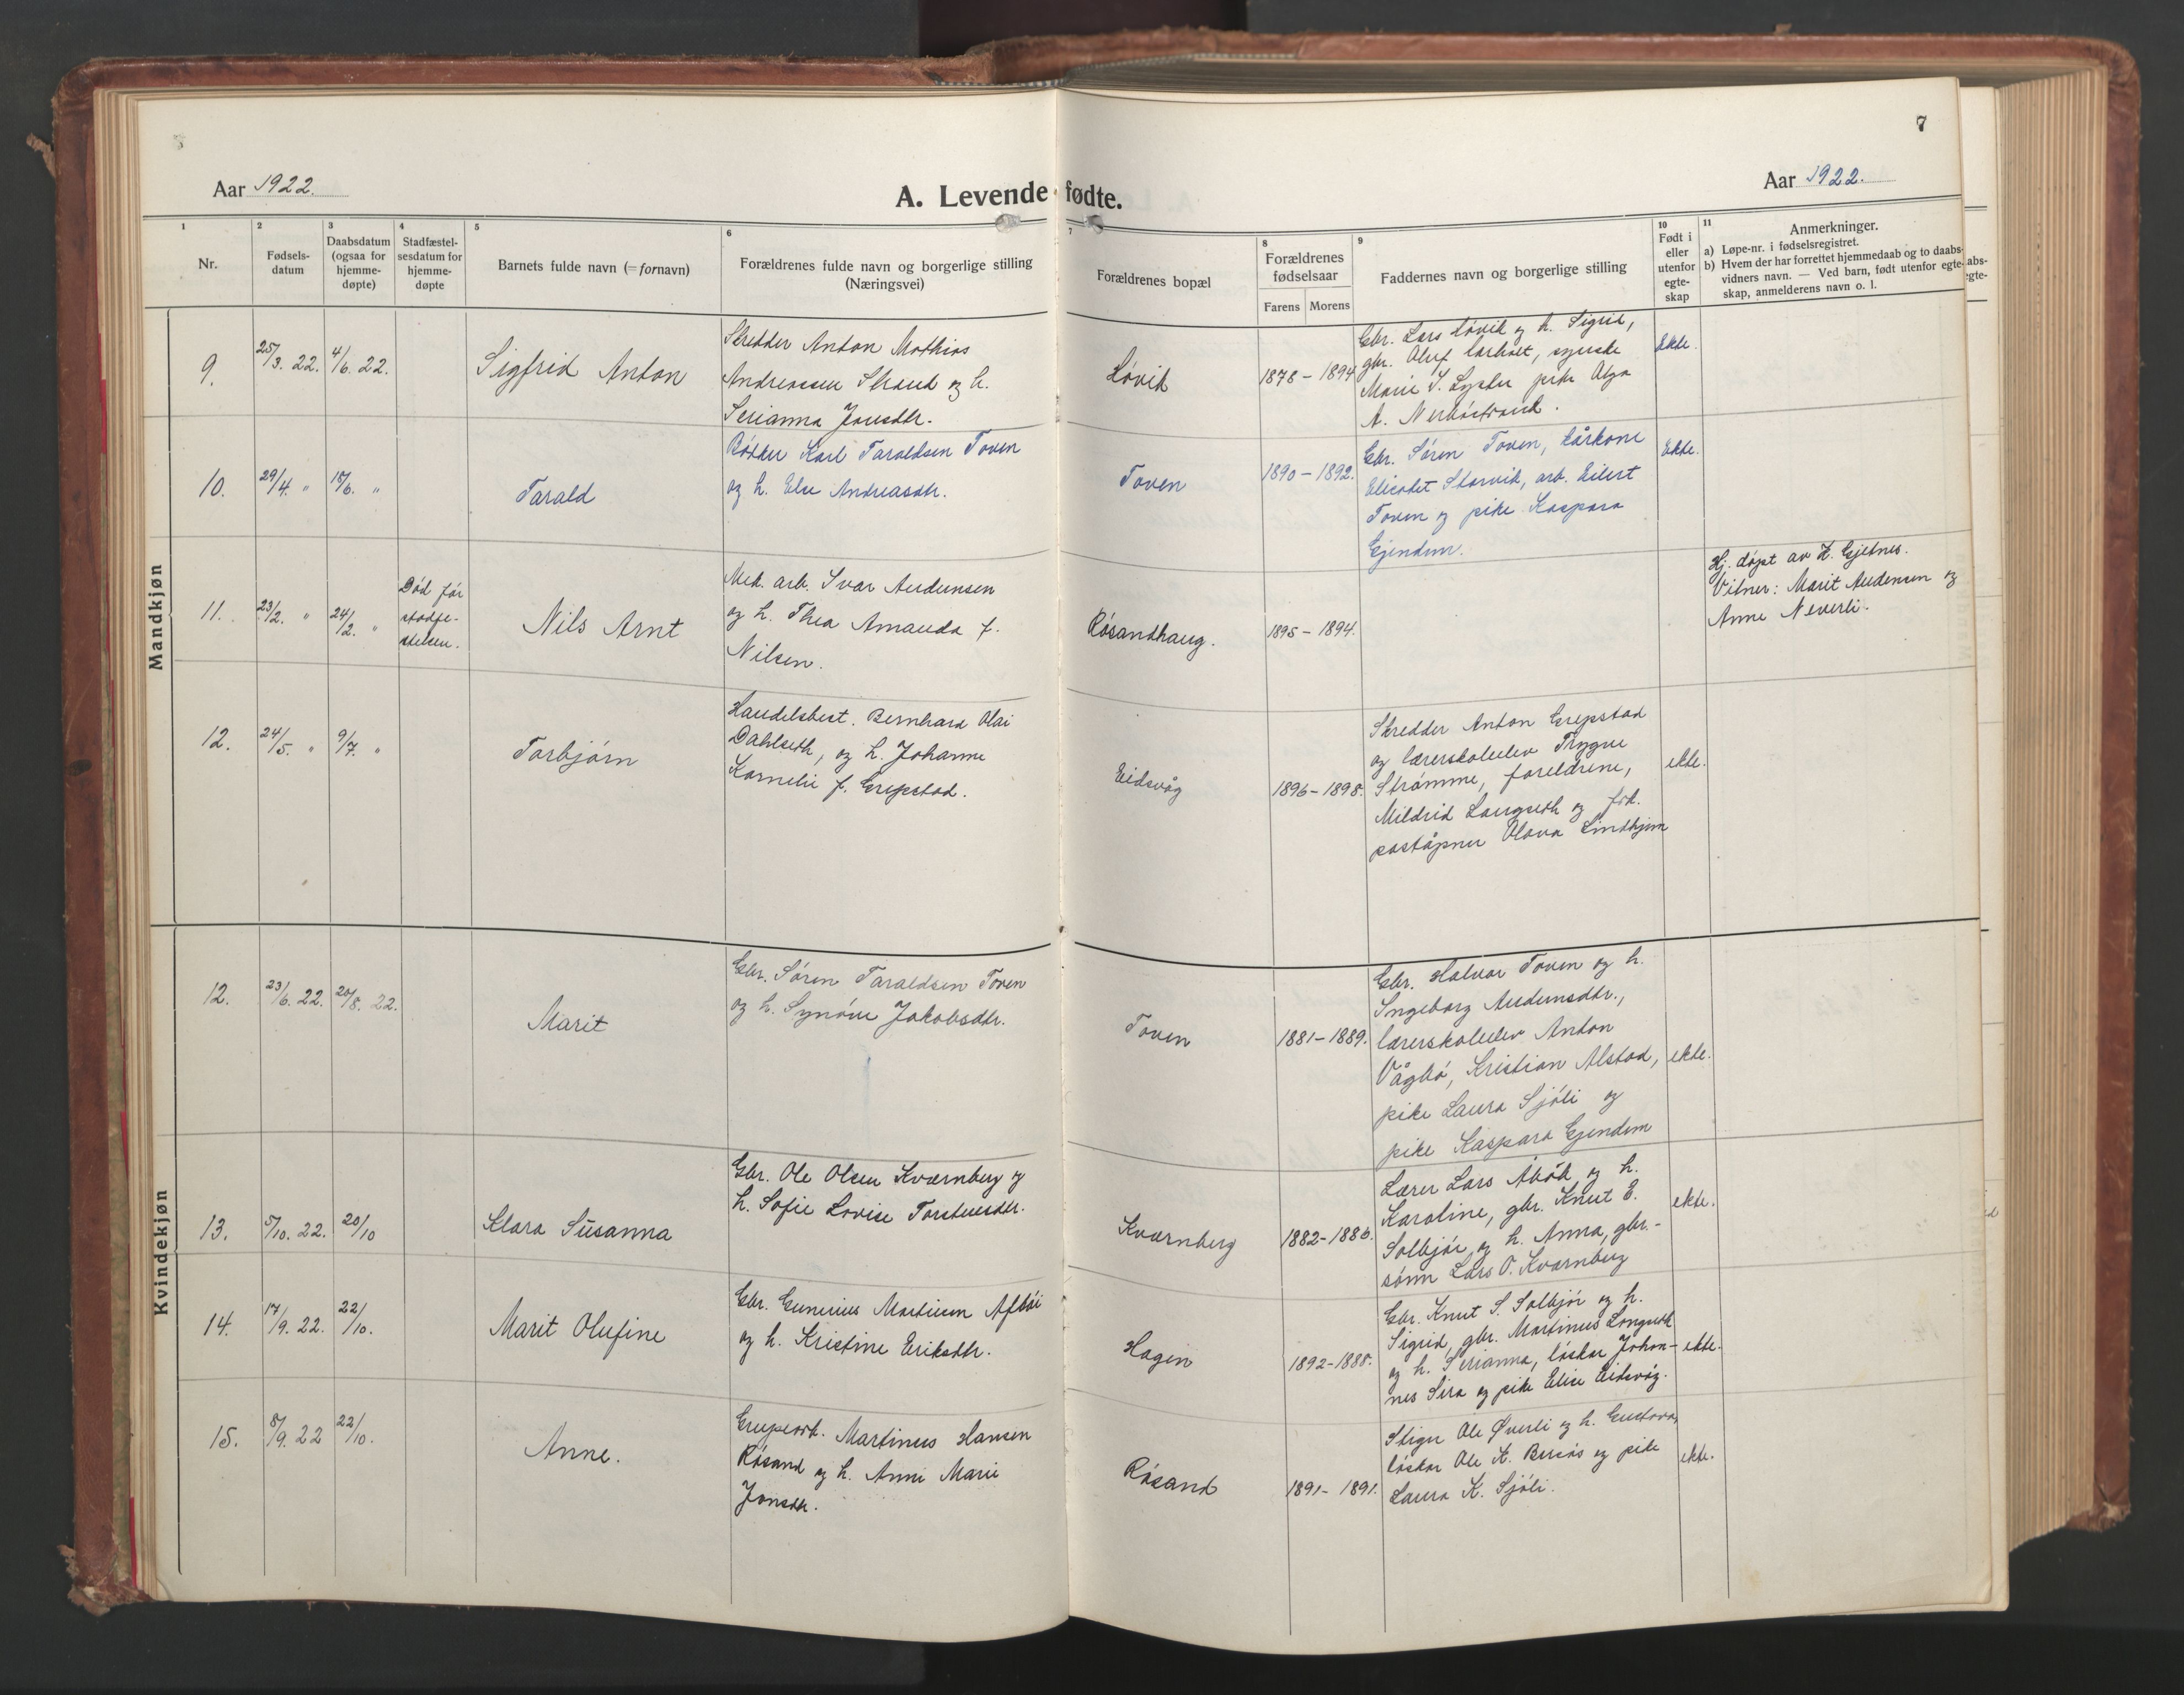 7
Aar 1922.
A. Levende fødte.
Aar 1922.
1
Nr.
2
Fødsels-
datum
3
Daabsdatum
(ogsaa for
hjemme-
døpte)
4
Stadfæstel-
sesdatum for
hjemme-
døpte
5
Barnets fulde navn (=fornavn)
6
Forældrenes fulde navn og borgerlige stilling
(Næringsvei)
7
Forældrenes bopæl
8
Forældrenes
fødselsaar
Farens Morens
9
Faddernes navn og borgerlige stilling
10
Født i
eller
utenfor
egte-
skap
11
Anmerkninger.
a) Løpe-nr. i fødselsregistret.
b) Hvem der har forrettet hjemmedaab og to daabs-
vidners navn. — Ved barn, født utenfor egte-
skap, anmelderens navn o. l.
Mandkjøn
9.
25/3. 22.
4/6. 22.
Sigfrid Anton
Skredder Anton Mathias
Andreassen Strand og h.
Serianna Jonsdtr.
Lövik
1878 – 1894
Gbr. Lars Lövik og h. Sigrid,
gbr. Oluf
Marie S. pike Olga
A. Nerböstrand.
Ekte.
10.
29/4. "
18/6. "
Tarald
Bökker Karl Taraldsen Toven
og h. Else Andreasdtr.
Toven
1890 – 1892.
Gbr. Sören Toven, kårkone
Elisabet Storvik, arb. Eilert
Toven og pike Kaspara
Gjendem.
Ekte.
11.
23/2. "
24/2. "
Död för
stadfe-
stelsen.
Nils Arnt
Mek. arb. Ivar Audunsen
og h. Thea Amanda f.
Nilsen.
Rösandhaug.
1895 – 1894.
Hj. döpt av K. Gjelnes.
Vitner: Marit Audensen og
Anne Neverli.
12.
24/5. "
9/7. "
Torbjörn
Handelsbest. Bernhard Olai
Dahlseth, og h. Johanne
Kornelie f. Grepstad.
Eidsvåg
1896 – 1898.
Skredder Anton Grepstad
og lærerskoleelev Trygve
Strömme, foreldrene,
Mildrid Langseth og frk.
poståpner Olava Lindhjem
ekte.
Kvindekjøn
12.
23/6. 22.
20/8. 22.
Marit
Gbr. Sören Taraldsen Toven
og h. Synöve Jakobsdtr.
Toven
1881 – 1889.
Gbr. Halvor Toven og h.
Ingeborg Audunsdtr.,
lærerskoleelev Anton
Vågbö, Kristian Alstad,
pike Laura Sjöli og
pike Kaspara Gjendem
ekte.
13.
5/10. 22.
20/10
Klara Susanna
Gbr. Ole Olsen Kvarnberg og
h. Sofie Lovise Torstensdtr.
Kvarnberg
1882 – 1886.
Lærer Lars og h.
Karoline, gbr. Knut E.
Solbjör og h. Anna, gbr.-
sönn Lars O. Kvarnberg
ekte.
14.
17/9. 22.
22/10.
Marit Olufine
Gbr. Gunerius Martinsen
og h. Kristine Eriksdtr.
Hagen
1892 – 1888.
Gbr. Knut S. Solbjör og h.
Sigrid, gbr. Martinus Langseth
og h. Serianna, löskar Johan-
nes Sira og pike Elise Eidsvåg.
ekte.
15.
8/9. 22
22/10.
Anne.
Martinus Hansen
Rösand og h. Anne Marie
Jonsdtr.
Rösand
1891 – 1891.
Stiger Ole Øverli og h. Gustava,
löskar Ole K. og pike
Laura K. Sjöli.
ekte.